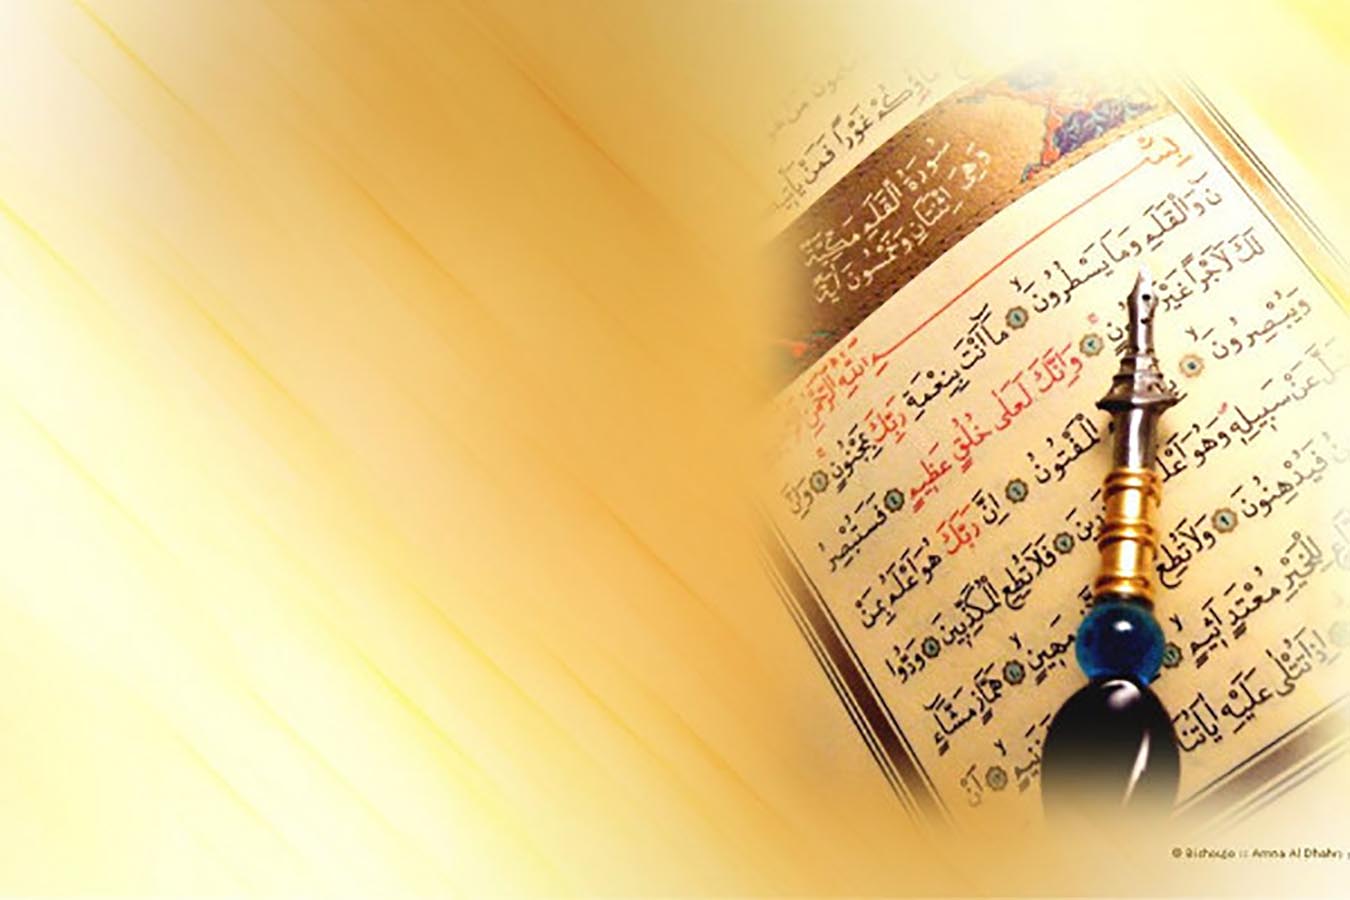 مَاؤُكُمْ غَوْرًا فَمَنْ
سُورَةُ الْقَلَمِ مَكِّيَّةٌ
وَهِيَ اثْنَتَانِ وَخَمْسُونَ آيَةً
بِسْمِ اللهِ الرَّحْمٰنِ
نٓ وَالْقَلَمِ وَمَا يَسْطُرُونَ ۙ ١ مَا أَنْتَ بِنِعْمَةِ رَبِّكَ بِمَجْنُونٍ ٢ وَإِنَّ
لَكَ لَأَجْرًا غَيْرَ ٣ وَإِنَّكَ لَعَلَى خُلُقٍ عَظِيمٍ ٤ فَسَتُبْصِرُ
وَيُبْصِرُونَ ۙ ٥ الْمَفْتُونُ ٦ إِنَّ رَبَّكَ هُوَ أَعْلَمُ بِمَنْ
ضَلَّ عَنْ سَبِيلِهِ وَهُوَ أَعْلَمُ ٧ فَلَا تُطِعِ الْمُكَذِّبِينَ ٨ وَدُّوا
فَيُدْهِنُونَ ٩ وَلَا تُطِعْ مَهِينٍ ۙ ١٠ هَمَّازٍ مَشَّاءٍ
لِلْخَيْرِ مُعْتَدٍ أَثِيمٍ ۙ ١٢ زَنِيمٍ ۙ ١٣ أَنْ
إِذَا تُتْلَى عَلَيْهِ آيَاتُنَا
Amna Al Dhahri